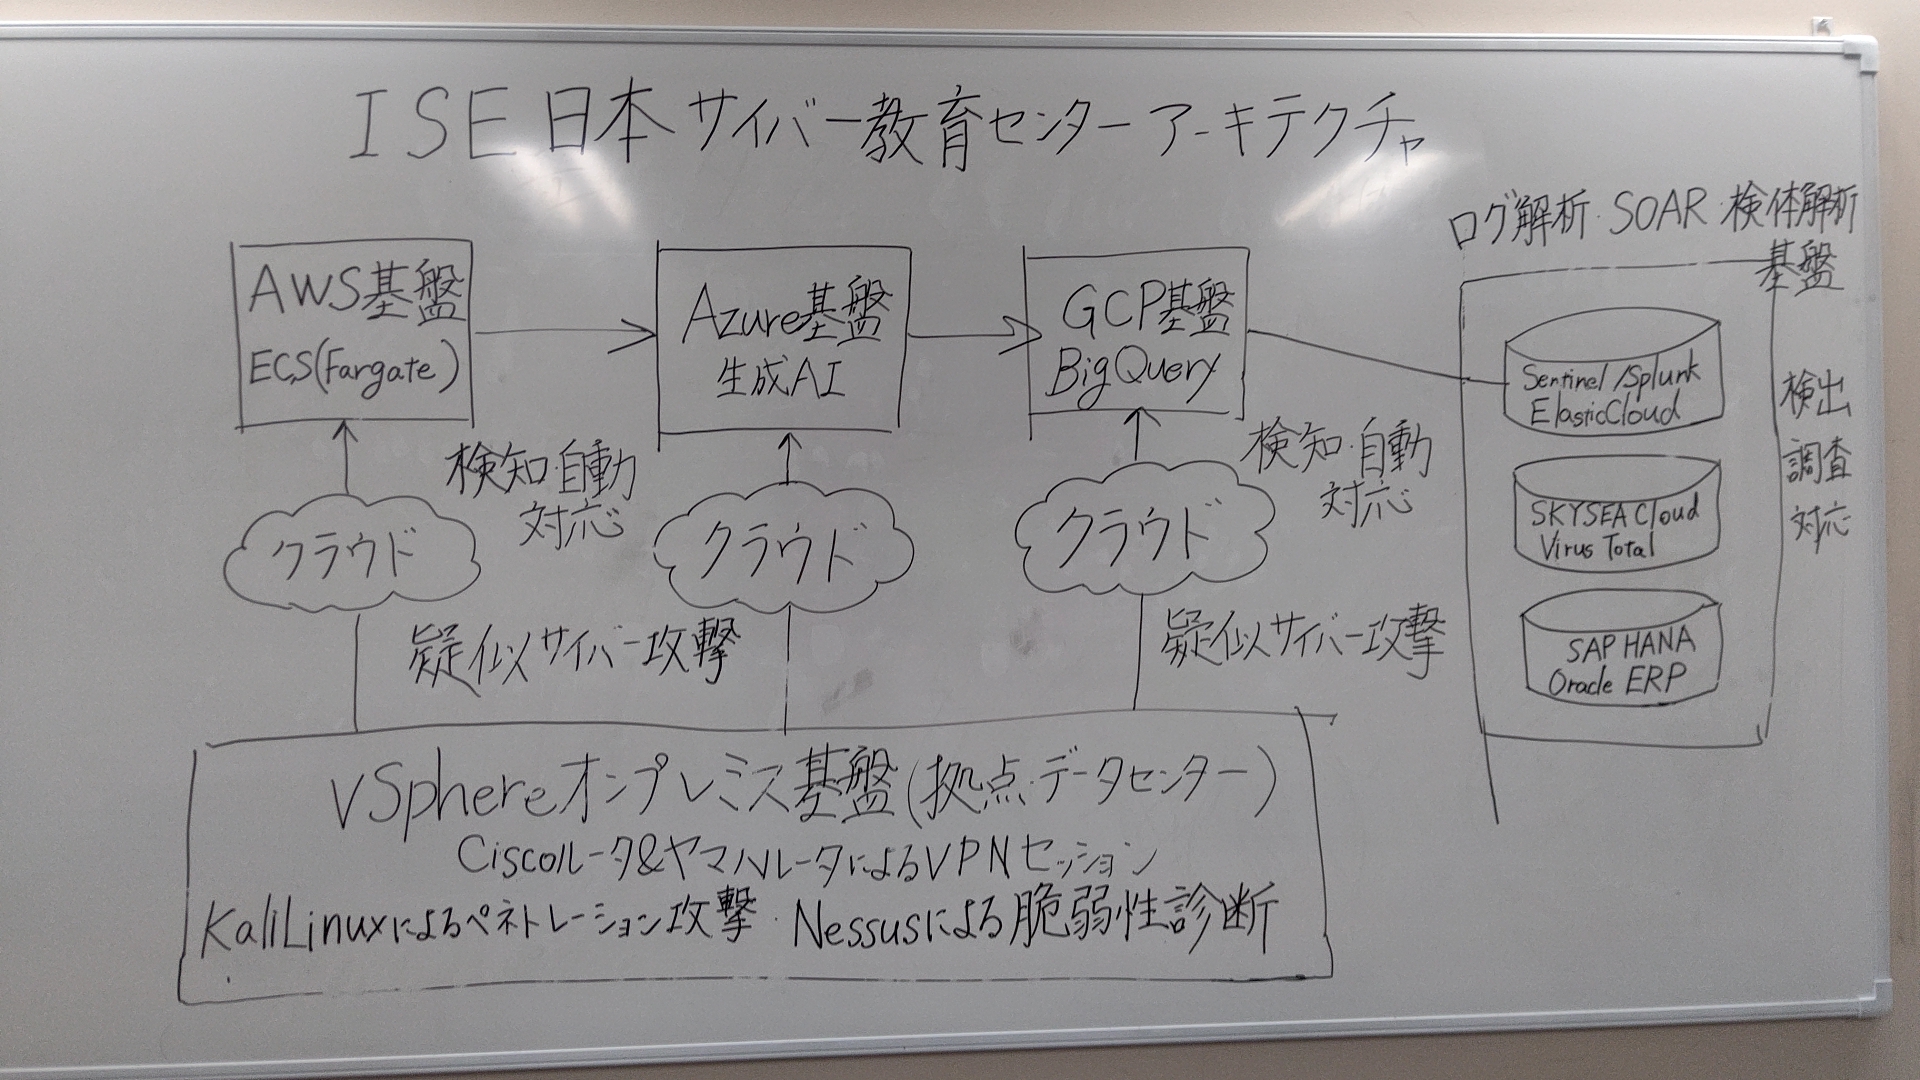 ISE 日本サイバー教育センターアーキテクチャ
ログ解析・SOAR・検体解析
基盤
AWS基盤
ECS(Fargate)
Azure基盤
生成AI
GCP基盤
BigQuery
Sentinel/Splunk
ElasticCloud
SKYSEA Cloud
Virus Total
SAP HANA
Oracle ERP
検出
調査
対応
検知・自動
対応
検知・自動
対応
クラウド
クラウド
クラウド
疑似サイバー攻撃
疑似サイバー攻撃
vSphereオンプレミス基盤(拠点・データセンター)
Ciscoルータ&ヤマハルータによるVPNセッション
KaliLinuxによるペネトレーション攻撃・Nessusによる脆弱性診断